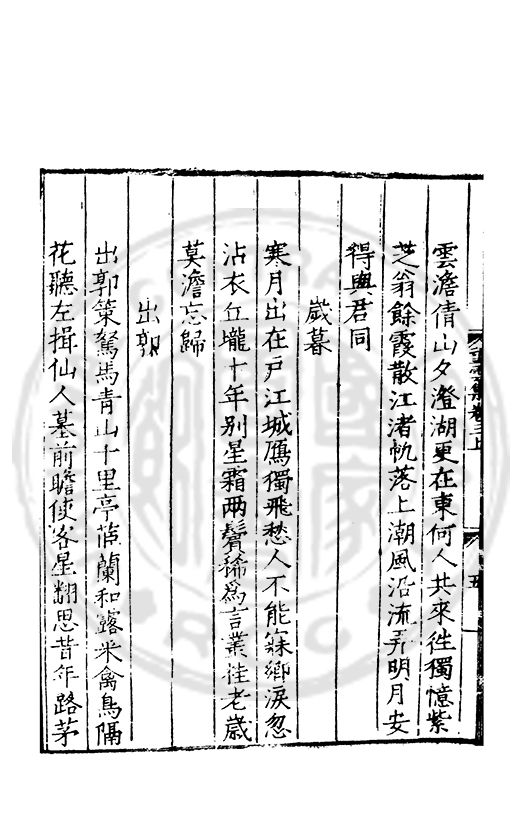 雲澹倩山夕澄湖更在東何人共來徃獨憶紫
芝翁餘霞散江渚帆落上潮風沿流弄明月安
得與君同
歲暮
寒月出在戸江城鴈獨飛愁人不能寐鄉淚忽
沾衣丘壠十年别星霜兩鬢稀爲言叢桂老歲
莫澹忘歸
出郭
出郭策駑馬青山十里亭蓀蘭和露采禽鳥隔
花聽左揖仙人墓前瞻使客星翻思昔年路茅
卷三上
五